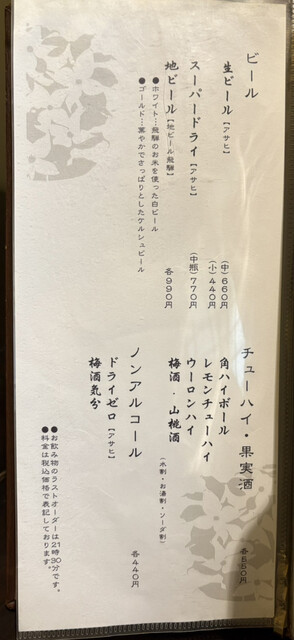 ビール
生ビール【アサヒ】 (中)660円
(小)440円
スーパードライ【アサヒ】 (中瓶)770円
地ビール【地ビール飛騨】 各990円
●ホワイト…飛騨のお米を使った白ビール
●ゴールド…華やかでさっぱりとしたケルシュビール
チューハイ・果実酒 各550円
角ハイボール
レモンチューハイ
ウーロンハイ
梅酒・山桃酒
(水割・お湯割・ソーダ割)
ノンアルコール 各440円
ドライゼロ【アサヒ】
梅酒気分
●お飲み物のラストオーダーは21時30分です。
●料金は税込価格で表記しております。